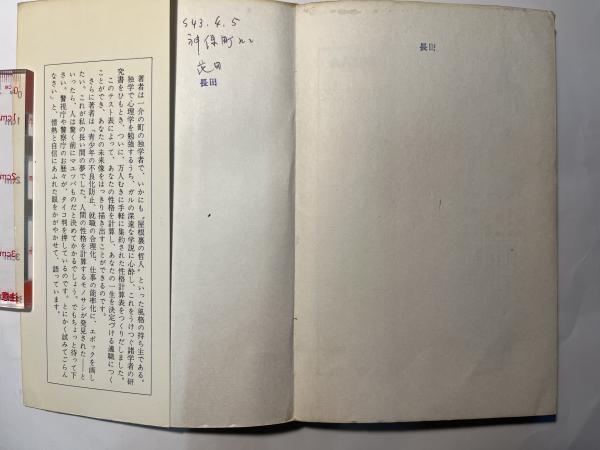 著者は一介の町の独学者で、いかにも“屋根裏の哲人”といった風格の持ち主である。
独学で心理学を勉強するうち、ガルの深遠な学説に心酔し、これをうけつぐ諸学者の研
究書をひもとき、ついに、万人むきに手軽に集約された性格計算表をつくりだしました。
このテスト表によって、あなたの性格を計算し、あなたの一生を決定づける適職につく
ことができ、あなたの未来像をはっきり描き出すことができるのです。
さらに著者は「青少年の不良化防止、就職の合理化、仕事の能率化に、エポックを画し
たい。これが私の長い間の夢でした。人間の性格を計算するモノサシが発見された――と
いったら、人は驚く前にマユツバものだと決めてかかるでしょう。でもちょっと待って下
さい。警視庁や警察庁のお歴々が、タイコ判を押しているのです。とにかく試みてごらん
なさい」と、情熱と自信にあふれた眼をかがやかせて、語っています。
S43.4.5
神保町にて
長田
長田